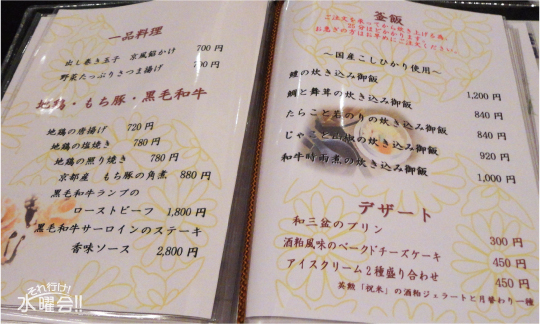 一品料理
出し巻き玉子 京風餡かけ 700円
野菜たっぷりさつま揚げ 700円
地鶏・もち豚・黒毛和牛
地鶏の唐揚げ 720円
地鶏の塩焼き 780円
地鶏の照り焼き 780円
京都産 もち豚の角煮 880円
黒毛和牛ランプの
ローストビーフ 1,800円
黒毛和牛サーロインのステーキ
香味ソース 2,800円
それ行け!
水曜会!!
釜飯
ご注文を承ってから炊き上げる為、
25分ほどかかります。
お急ぎの方はお早めにご注文ください。
〜国産こしひかり使用〜
鱧の炊き込み御飯 1,200円
鯛と舞茸の炊き込み御飯 840円
たらこと岩のりの炊き込み御飯 840円
じゃこと山椒の炊き込み御飯 920円
和牛時雨煮の炊き込み御飯 1,000円
デザート
和三盆のプリン 300円
酒粕風味のベークドチーズケーキ 450円
アイスクリーム2種盛り合わせ 450円
英勲「祝米」の酒粕ジェラートと月替わり一種